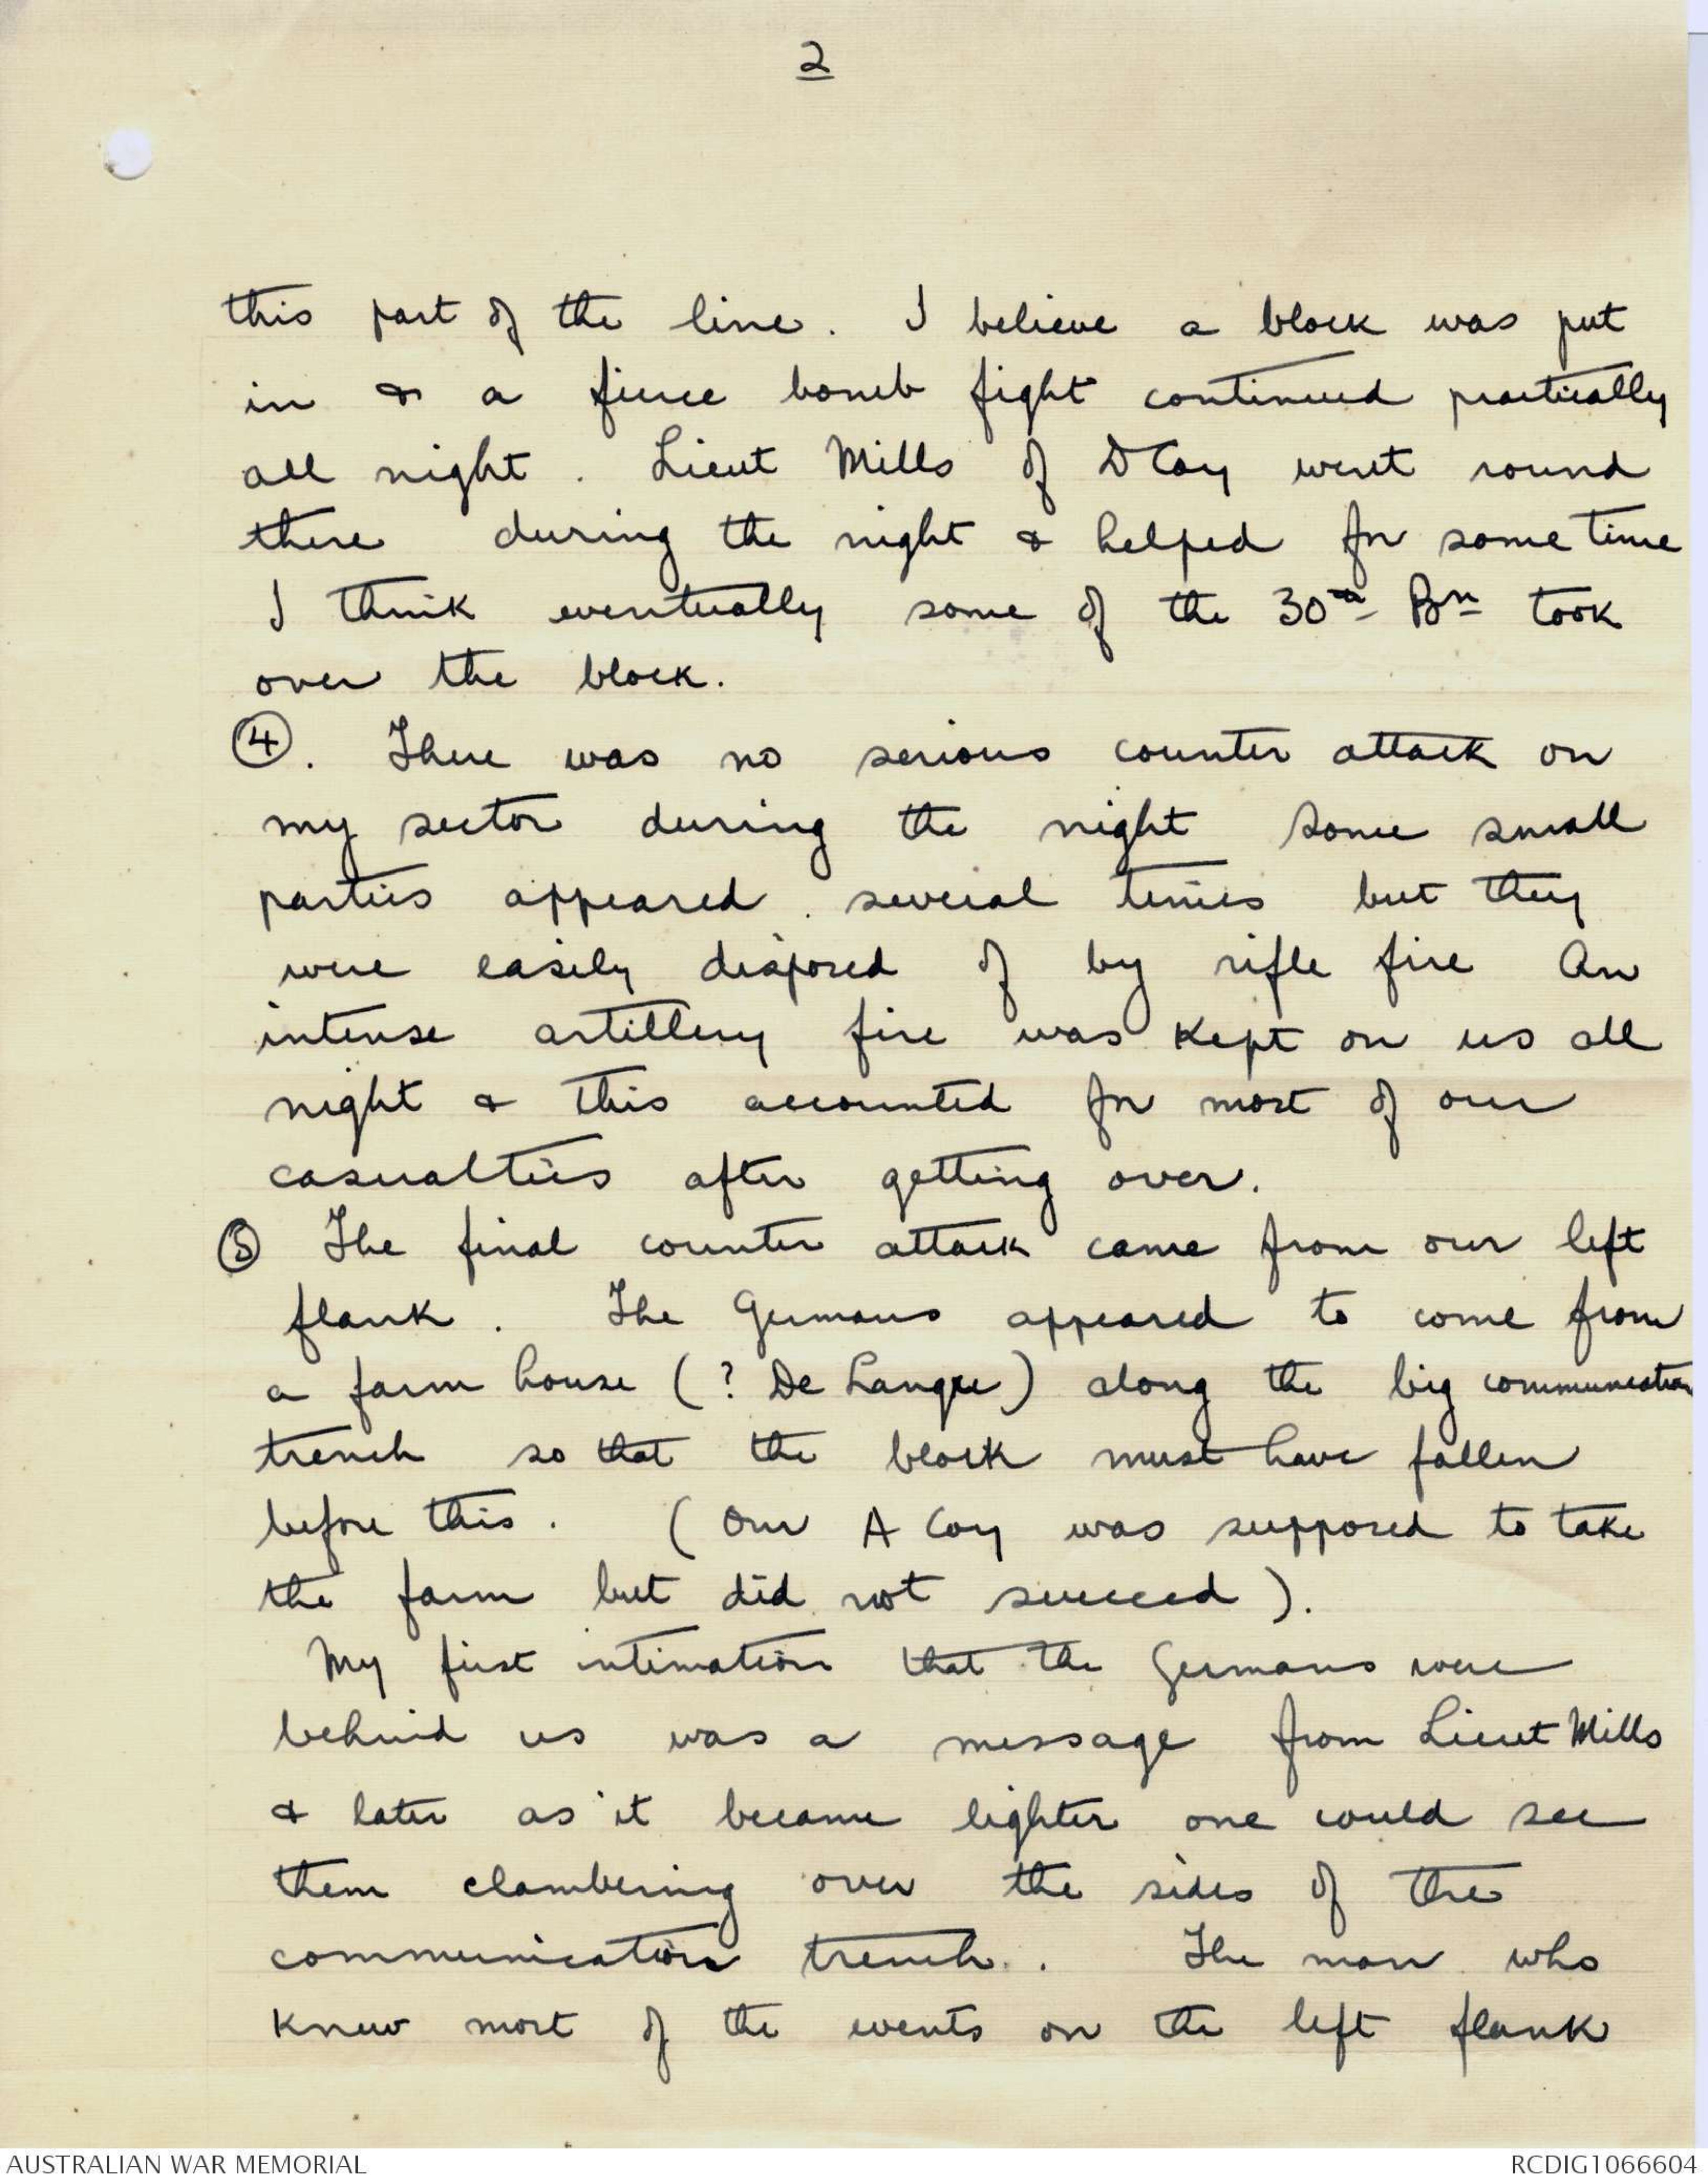 2
this part of the line. I believe a block was put
in & a fierce bomb fight continued practically
all night. Lieut Mills of D Coy went round
there during the night & helped for some time
I think eventually some of the 30th Bn took
over the block.
④. There was no serious counter attack on
my sector during the night some small
parties appeared several times but they
were easily disposed of by rifle fire An
intense artillery fire was kept on us all
night & this accounted for most of our
casualties after getting over.
⑤ The final counter attack came from our left
flank. The Germans appeared to come from
a farm house (? De Langre) along the big communication
trench so that the block must have fallen
before this. (Our A Coy was supposed to take
the farm but did not succeed).
My first intimation that the Germans were
behind us was a message from Lieut Mills
& later as it became lighter one could see
them clambering over the sides of the
communication trench. The man who
knew most of the events on the left flank
AUSTRALIAN WAR MEMORIAL
RCDIG1066604